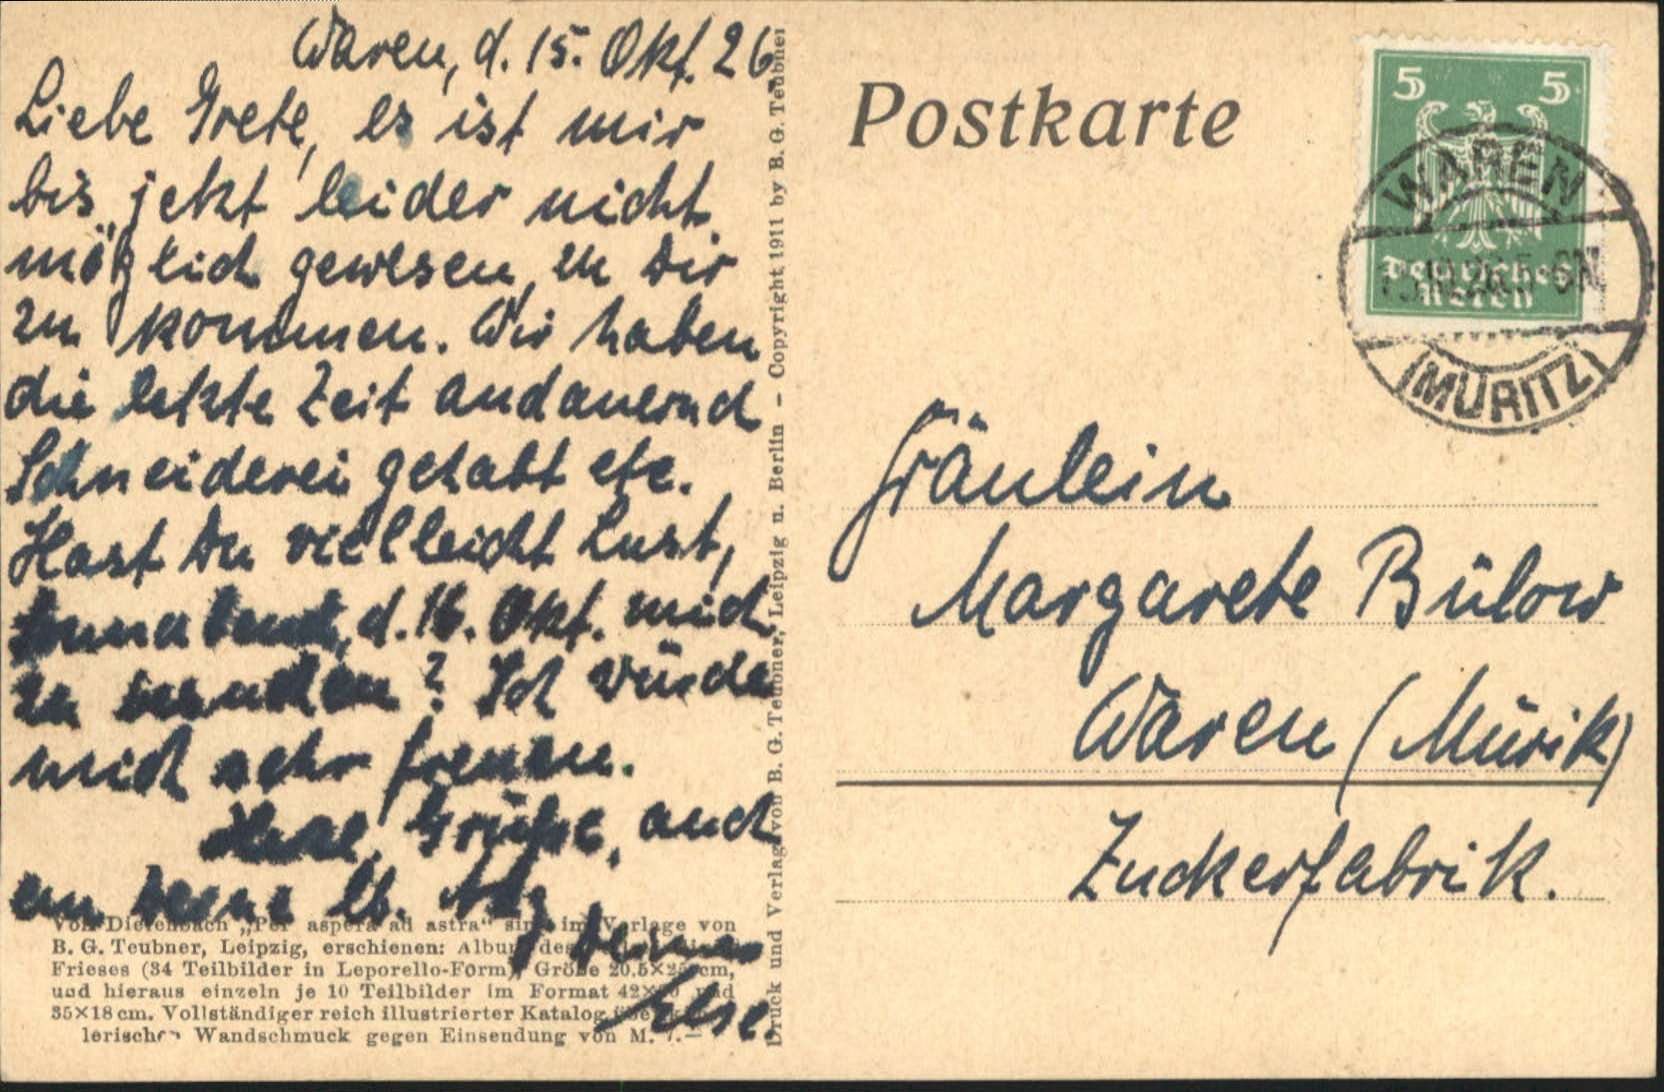 Waren, d. 15. Okt. 26.
Liebe Grete, es ist mir
bis jetzt leider nicht
möglich gewesen, zu Dir
zu kommen. Wir haben
die letzte Zeit andauernd
Schneiderei gehabt etc.
Hast Du vielleicht Lust,
Sonnabend, d. 16. Okt. mich
zu besuchen? Ich würde
mich sehr freuen.
Herzl. Grüße, auch
an Deine lb.
Deine
Else.
Von Diefenbach „Per aspera ad astra“ sind im Verlage von
B. G. Teubner, Leipzig, erschienen: Album des
Frieses (34 Teilbilder in Leporello-Form), Größe 20,5×25 cm,
und hieraus einzeln je 10 Teilbilder im Format 42× und
35×18 cm. Vollständiger reich illustrierter Katalog
lerischen Wandschmuck gegen Einsendung von M.
Druck und Verlag von B. G. Teubner, Leipzig u. Berlin – Copyright 1911 by B. G. Teubner
Postkarte
5 5
Deutsches
Reich
WAREN
5-6N
(MÜRITZ)
Fräulein
Margarete Bülow
Waren (Müritz)
Zuckerfabrik.